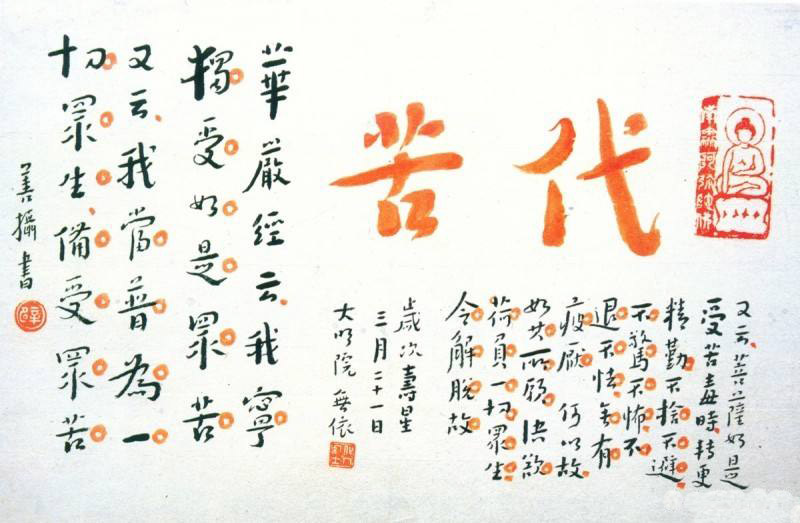 南無阿彌陀佛
代苦
又云菩薩如是
受苦毒時轉更
精勤不捨不避
不驚不怖不
退不怯無有
疲厭何以故
如其所願決欲
荷負一切眾生
令解脫故
歲次壽星
三月二十一日
大明院無依
華嚴經云我寧
獨受如是眾苦
又云我當普為一
切眾生備受眾苦
善攝書